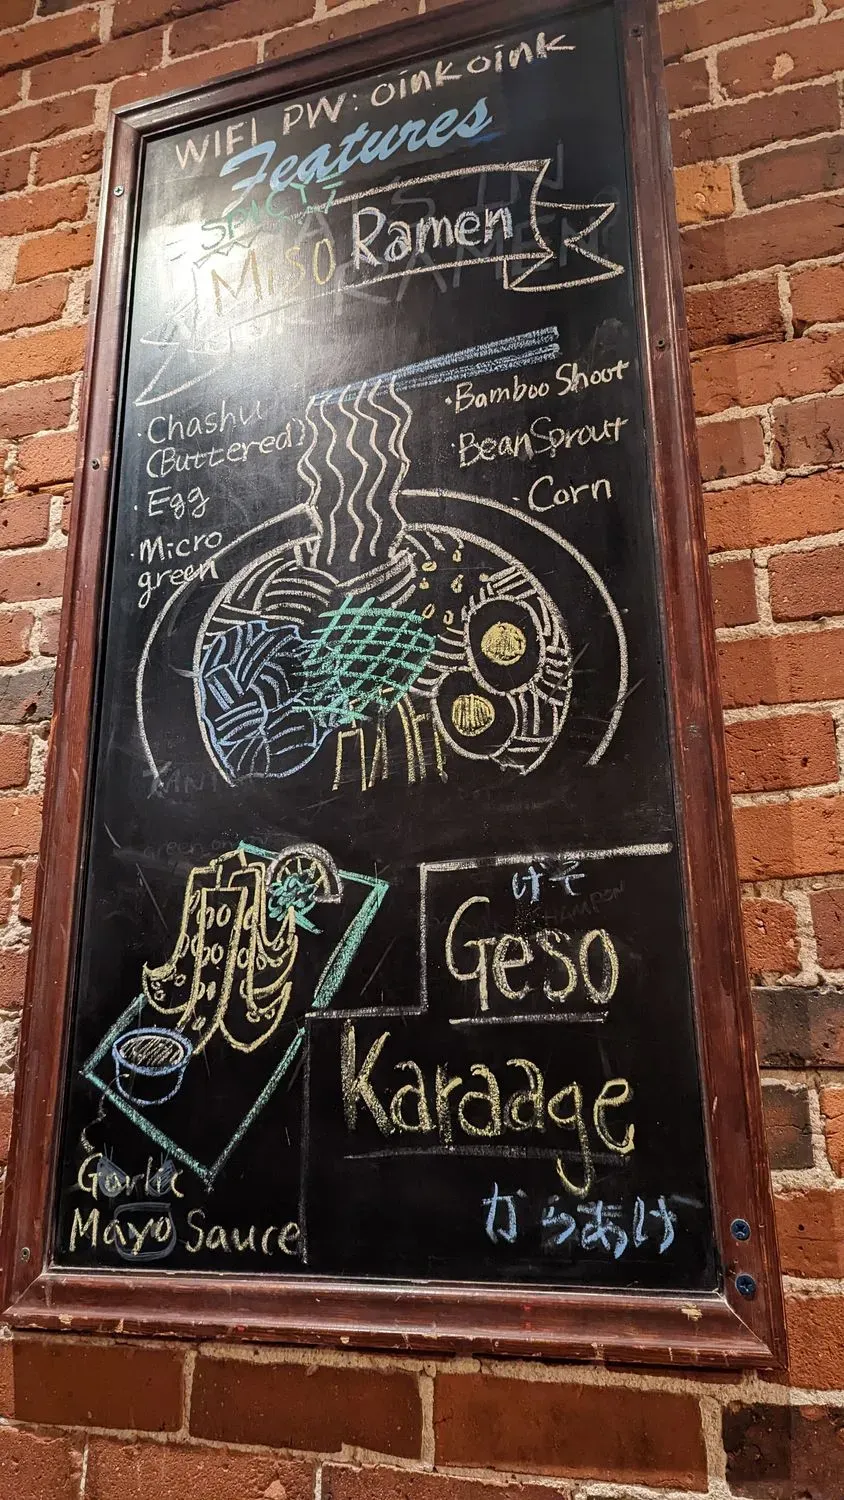 WIFI PW: oinkoink
Features
SPICY
Miso Ramen
· Chashu
(Buttered)
· Egg
· Micro
green
· Bamboo Shoot
· Bean Sprout
· Corn
げそ
Geso
Karaage
からあげ
Garlic
Mayo Sauce